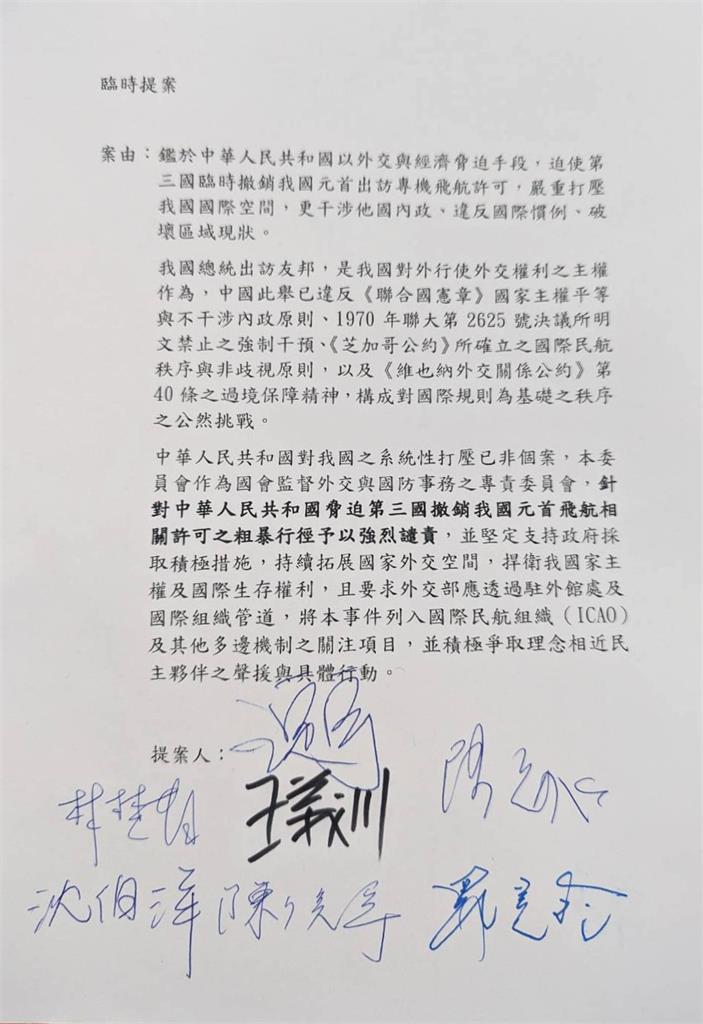 臨時提案
案由：鑑於中華人民共和國以外交與經濟脅迫手段，迫使第
三國臨時撤銷我國元首出訪專機飛航許可，嚴重打壓
我國國際空間，更干涉他國內政、違反國際慣例、破
壞區域現狀。
我國總統出訪友邦，是我國對外行使外交權利之主權
作為，中國此舉已違反《聯合國憲章》國家主權平等
與不干涉內政原則、1970 年聯大第 2625 號決議所明
文禁止之強制干預、《芝加哥公約》所確立之國際民航
秩序與非歧視原則，以及《維也納外交關係公約》第
40 條之過境保障精神，構成對國際規則為基礎之秩序
之公然挑戰。
中華人民共和國對我國之系統性打壓已非個案，本委
員會作為國會監督外交與國防事務之專責委員會，針
對中華人民共和國脅迫第三國撤銷我國元首飛航相
關許可之粗暴行徑予以強烈譴責，並堅定支持政府採
取積極措施，持續拓展國家外交空間，捍衛我國家主
權及國際生存權利，且要求外交部應透過駐外館處及
國際組織管道，將本事件列入國際民航組織（ICAO）
及其他多邊機制之關注項目，並積極爭取理念相近民
主夥伴之聲援與具體行動。
提案人：
林楚茵 王義川
沈伯洋 陳俊宇